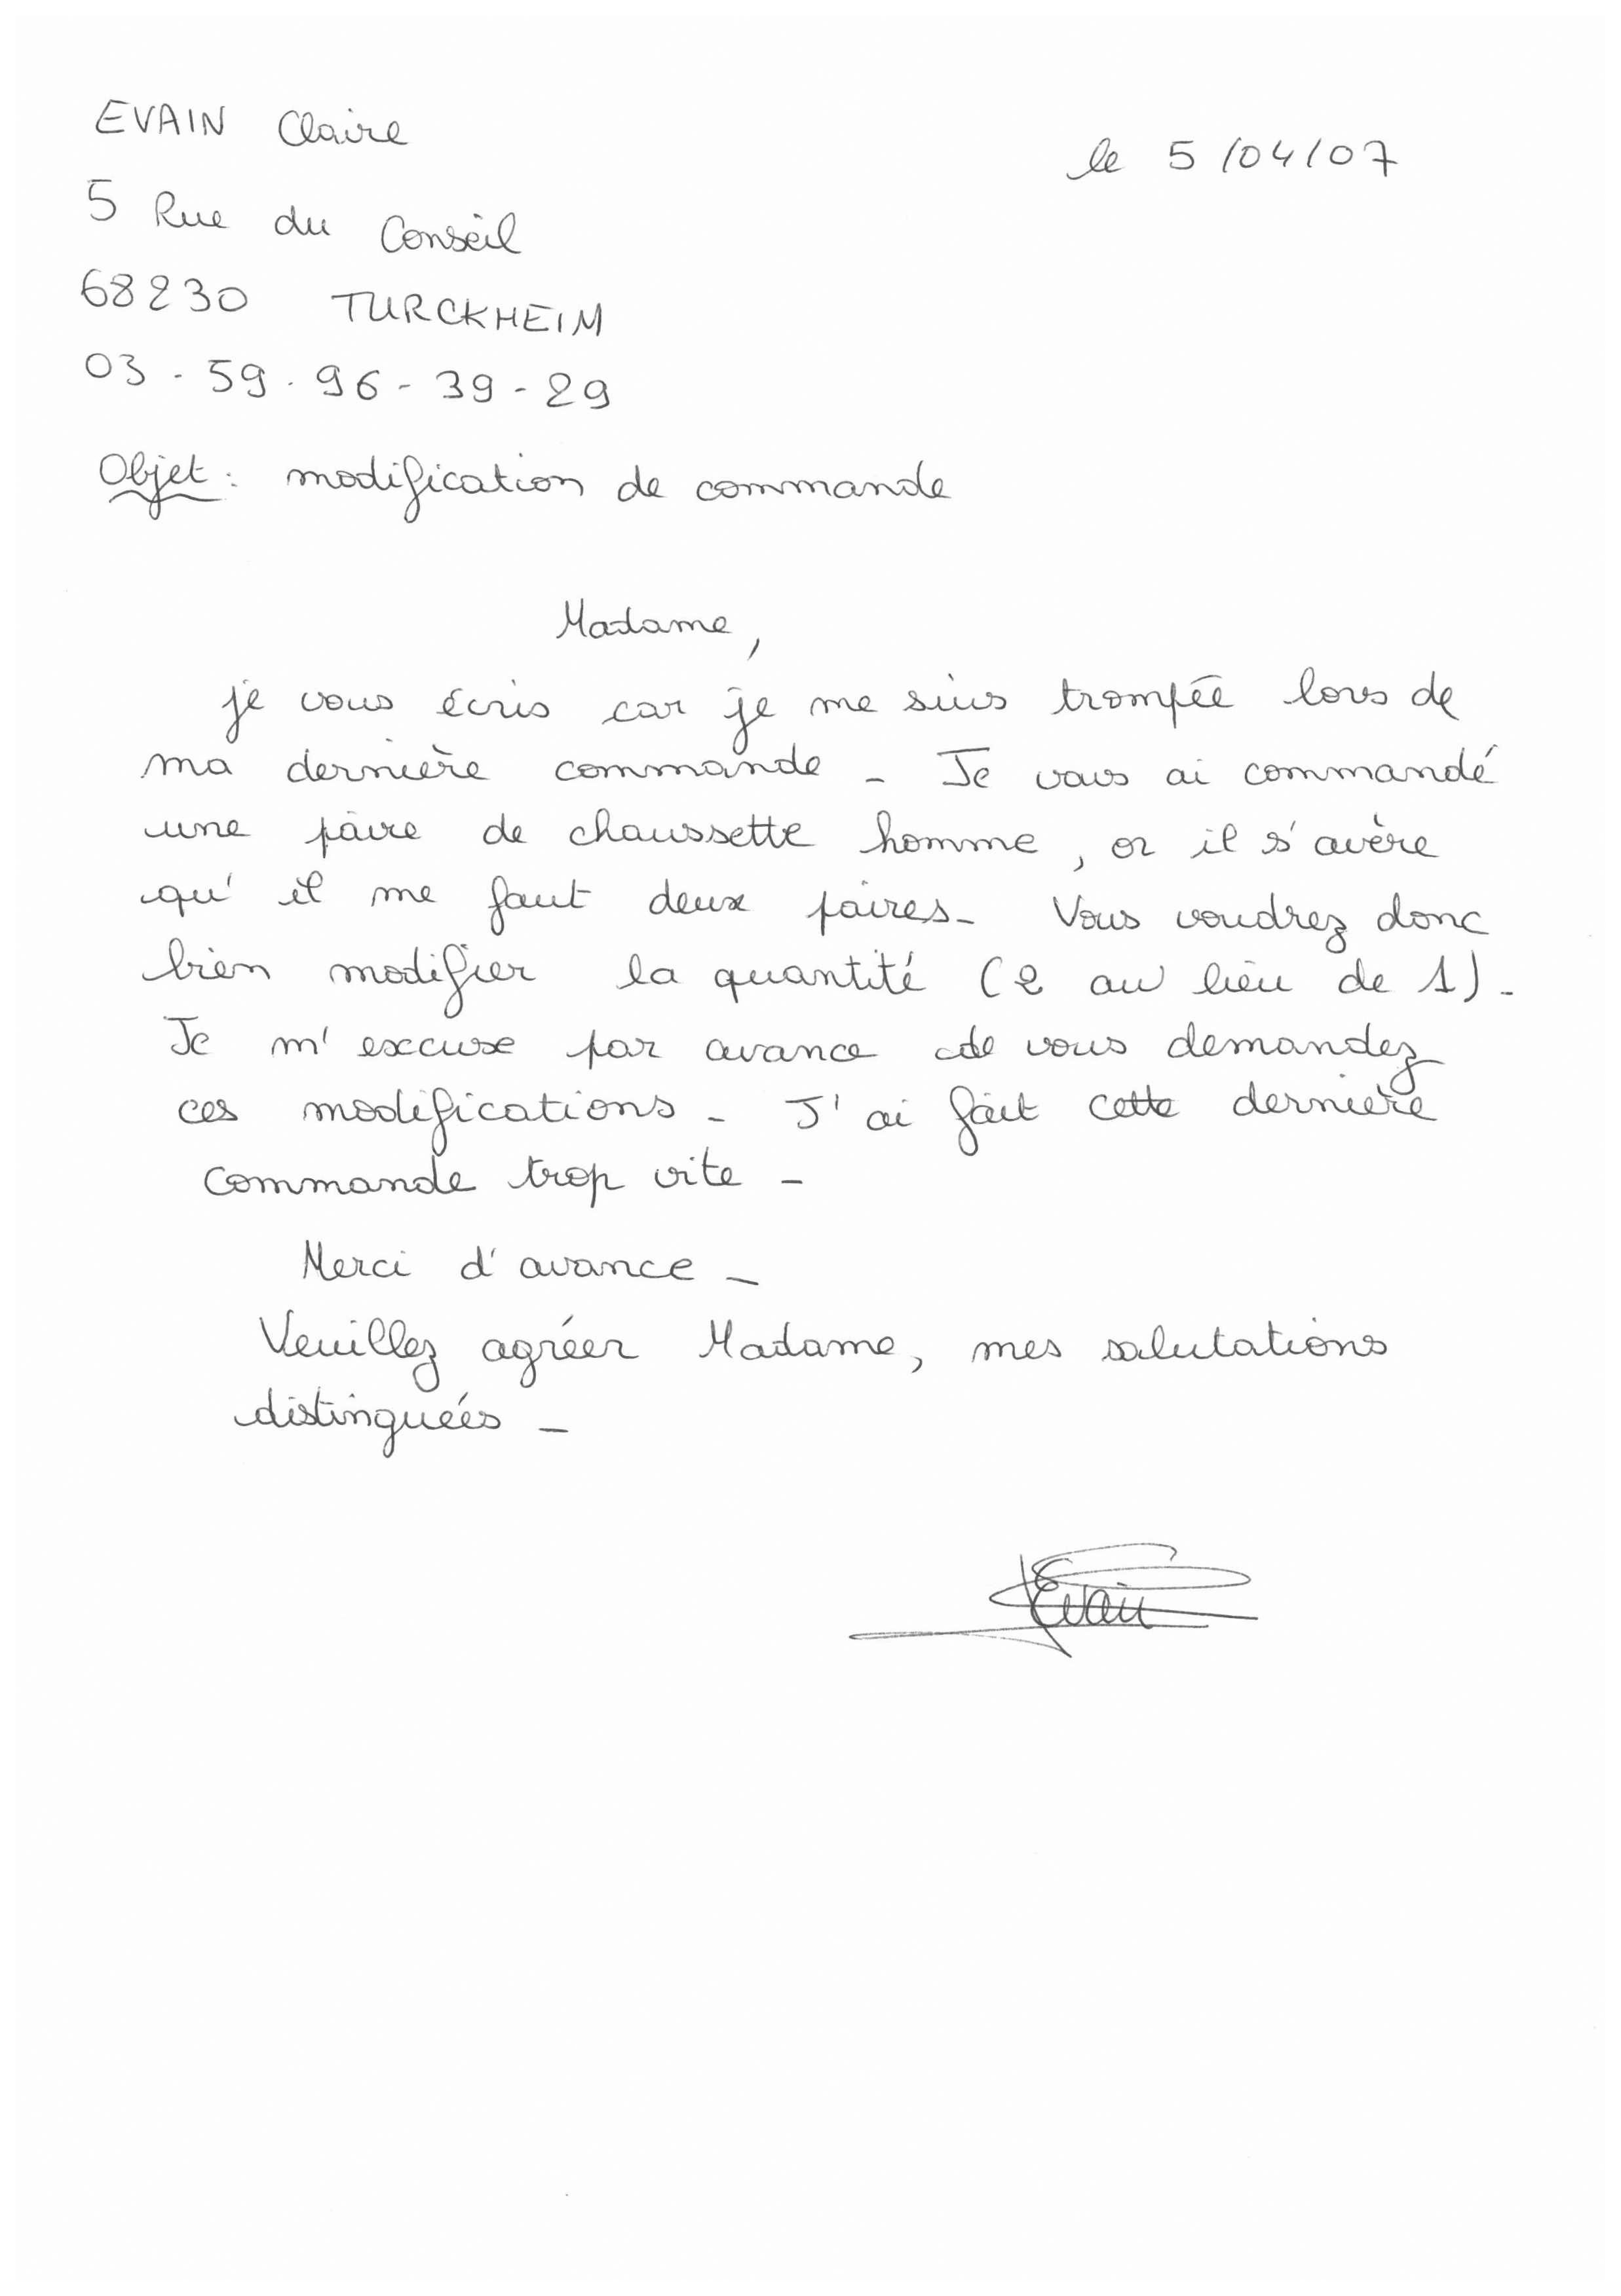 EVAIN Claire
le 5/04/07
5 Rue du Conseil
68230 TURCKHEIM
03-59-96-39-29
Objet : modification de commande
Madame,
je vous écris car je me suis trompée lors de
ma dernière commande - Je vous ai commandé
une paire de chaussette homme, or il s'avère
qu'il me faut deux paires - Vous voudrez donc
bien modifier la quantité (2 au lieu de 1) -
Je m'excuse par avance de vous demandez
ces modifications - J'ai fait cette dernière
commande trop vite -
Merci d'avance -
Veuillez agréer Madame, mes salutations
distinguées -
Evain